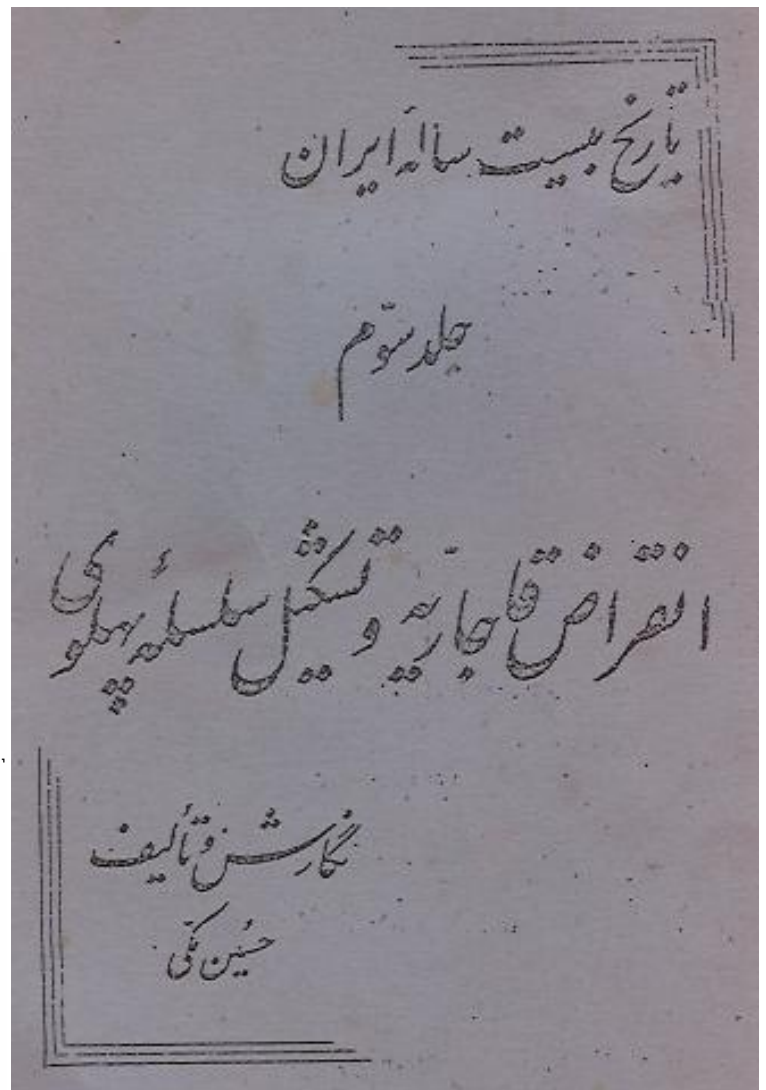 تاریخ بیست سالهٔ ایران
جلد سوّم
انقراض قاجاریّه و تشکیل سلسلهٔ پهلوی
نگارش و تألیف
حسین مکّی